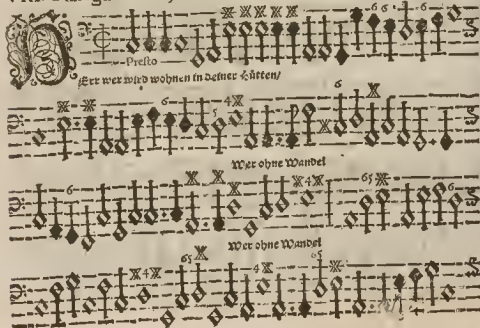 Presto
HErr wer wird wohnen in deiner Hütten/
Wer ohne Wandel
Wer ohne Wandel